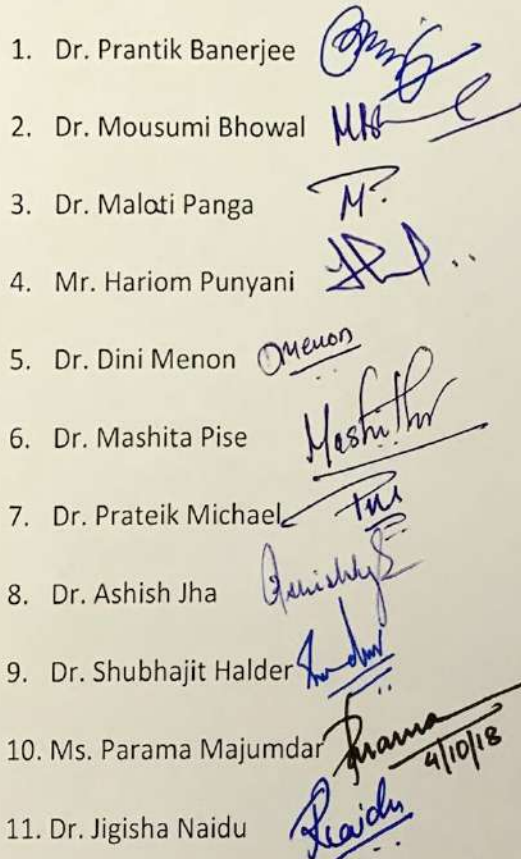 1. Dr. Prantik Banerjee
2. Dr. Mousumi Bhowal
3. Dr. Maloti Panga M.
4. Mr. Hariom Punyani
5. Dr. Dini Menon DMenon
6. Dr. Mashita Pise
7. Dr. Prateik Michael
8. Dr. Ashish Jha
9. Dr. Shubhajit Halder
10. Ms. Parama Majumdar Parama
4/10/18
11. Dr. Jigisha Naidu